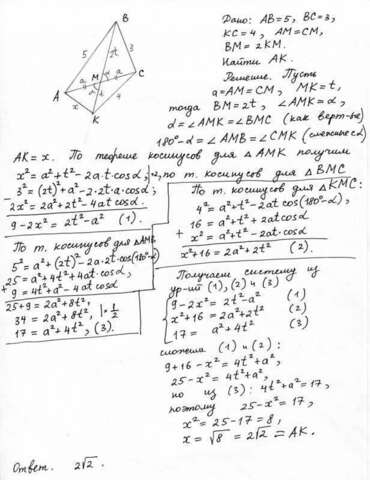 B
5
2t
3
a
M
a
C
A
x
t
4
K
Дано: AB=5, BC=3,
KC=4, AM=CM,
BM=2KM.
Найти AK.
Решение. Пусть
a=AM=CM, MK=t,
тогда BM=2t, ∠AMK=α,
α=∠AMK=∠BMC (как верт-ые)
180°-α=∠AMB=∠CMK (смежные с α)
AK=x. По теореме косинусов для △AMK получим
x²=a²+t²-2a·t·cosα; 2, по т. косинусов для △BMC
3²=(2t)²+a²-2·2t·a·cosα;
2x²=2a²+2t²-4at cosα.
9-2x²=2t²-a² (1).
По т. косинусов для △AMB
5²=a²+(2t)²-2a·2t·cos(180°-α)
+25=a²+4t²+4at·cosα,
9=4t²+a²-4at cosα
25+9=2a²+8t²,
34=2a²+8t², |·1/2
17=a²+4t², (3).
По т. косинусов для △KMC:
4²=a²+t²-2at cos(180°-α),
16=a²+t²+2at cosα
+ x²=a²+t²-2at·cosα
x²+16=2a²+2t² (2).
Получаем систему из
ур-ий (1), (2) и (3)
9-2x²=2t²-a² (1)
x²+16=2a²+2t² (2)
17=a²+4t² (3)
сложим (1) и (2):
9+16-x²=4t²+a²,
25-x²=4t²+a²,
но из (3): 4t²+a²=17,
поэтому 25-x²=17,
x²=25-17=8,
x=√8=2√2=AK.
Ответ. 2√2.